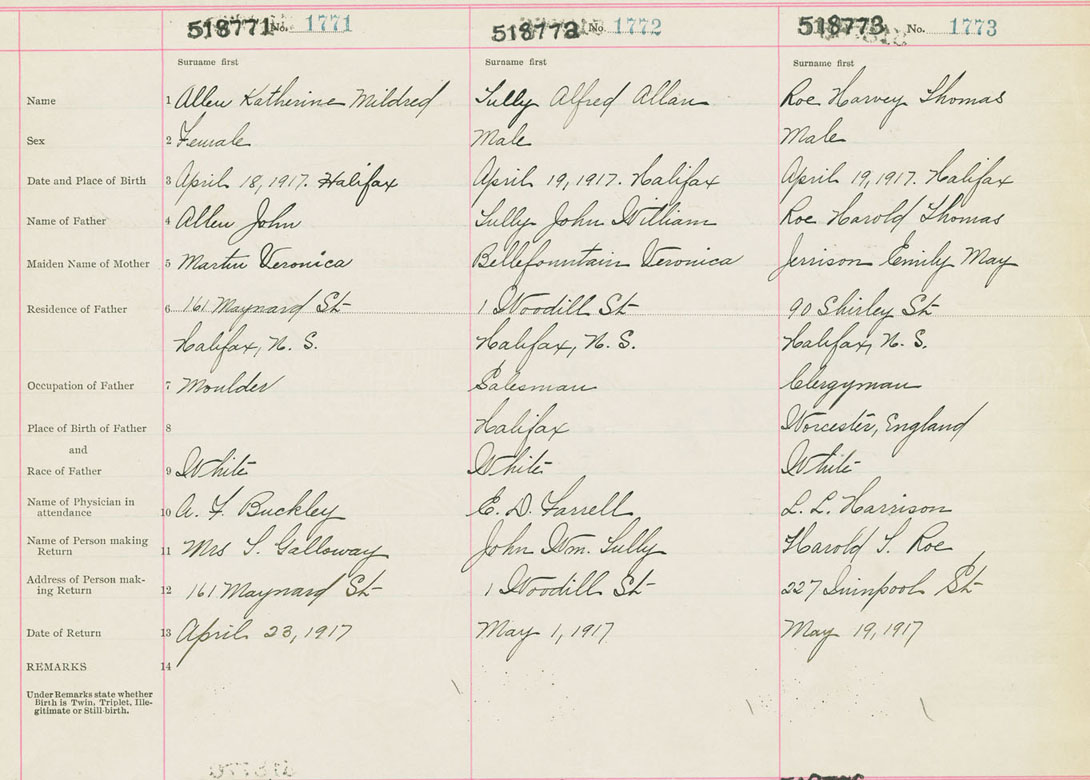 518771 No. 1771 518772 No. 1772 518773 No. 1773
Surname first Surname first Surname first
Name 1 Allen Katherine Mildred Tully Alfred Allan Roe Harvey Thomas
Sex 2 Female Male Male
Date and Place of Birth 3 April 18, 1917. Halifax April 19, 1917. Halifax April 19, 1917. Halifax
Name of Father 4 Allen John Tully John William Roe Harold Thomas
Maiden Name of Mother 5 Martin Veronica Bellefountain Veronica Jerrison Emily May
Residence of Father 6 161 Maynard St 1 Woodill St 90 Shirley St
Halifax, N. S. Halifax, N. S. Halifax, N. S.
Occupation of Father 7 Moulder Salesman Clergyman
Place of Birth of Father 8 Halifax Worcester, England
and
Race of Father 9 White White White
Name of Physician in
attendance 10 A. F. Buckley E. D. Farrell L. L. Harrison
Name of Person making
Return 11 Mrs S. Galloway John Wm. Tully Harold T. Roe
Address of Person mak-
ing Return 12 161 Maynard St 1 Woodill St 227 Quinpool St
Date of Return 13 April 23, 1917 May 1, 1917 May 19, 1917
REMARKS 14
Under Remarks state whether
Birth is Twin, Triplet, Ille-
gitimate or Still-birth.